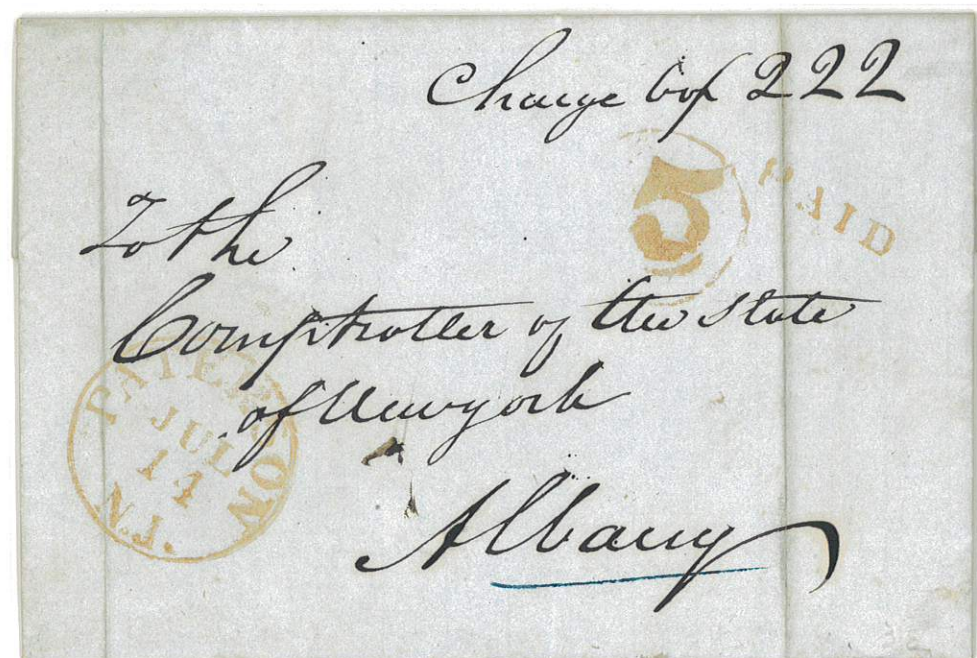 Charge box 222
5
PAID
To the
Comptroller of the State
of Newyork
Albany
PATERSON
JUL
14
N.J.